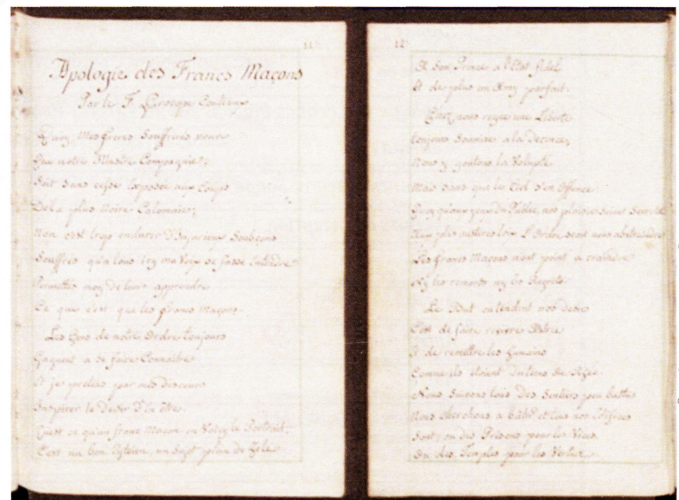 11
Apologie des Francs Maçons
Par le F.
Quoy, Mes freres souffrires vous
Que notre Illustre Compagnie,
Soit sans cesse Exposée aux Coups
De la plus Noire Calomnie,
Non c'est trop endurer D'Injurieux Soubçons
Souffrés qu'a tous icy ma Voix se fasse Entendre
Permettés moy de leur apprendre
Ce que c'est que les francs Maçons.
Les Gens de notre Ordre toujours
Gagnent a se faire Connoître
Et je pretens par mes discours
Inspirer le Desir D'En être.
Qu'est ce qu'un franc Maçon, en Voicy le Portrait.
C'est un bon Citoien, un Sujet plein de Zele
12
A Son Prince a l'Etat fidel
Et de plus un Amy parfait.
Chez nous regne une Liberté
toujours Soumise a la Decence,
Nous y goutons la Volupté
Mais Sans que le Ciel s'en Offence
Quoy qu'aux yeux du Public, nos plaisirs Soient Secrets
Aux plus austeres Loix l'Ordre sçait nous
Les francs Maçons n'ont point a craindre
Ny les remords ny les Regrets.
Le But ou tendent nos desirs
C'est de faire revivre Astrée
Et de remettre les humains
Comme ils étoient du tems de
Nous Suivons tous Des Sentiers peu battus
Nous cherchons a batir et tous nos Edifices
Sont, ou des Prisons pour les Vices
Ou des Temples pour les Vertus.